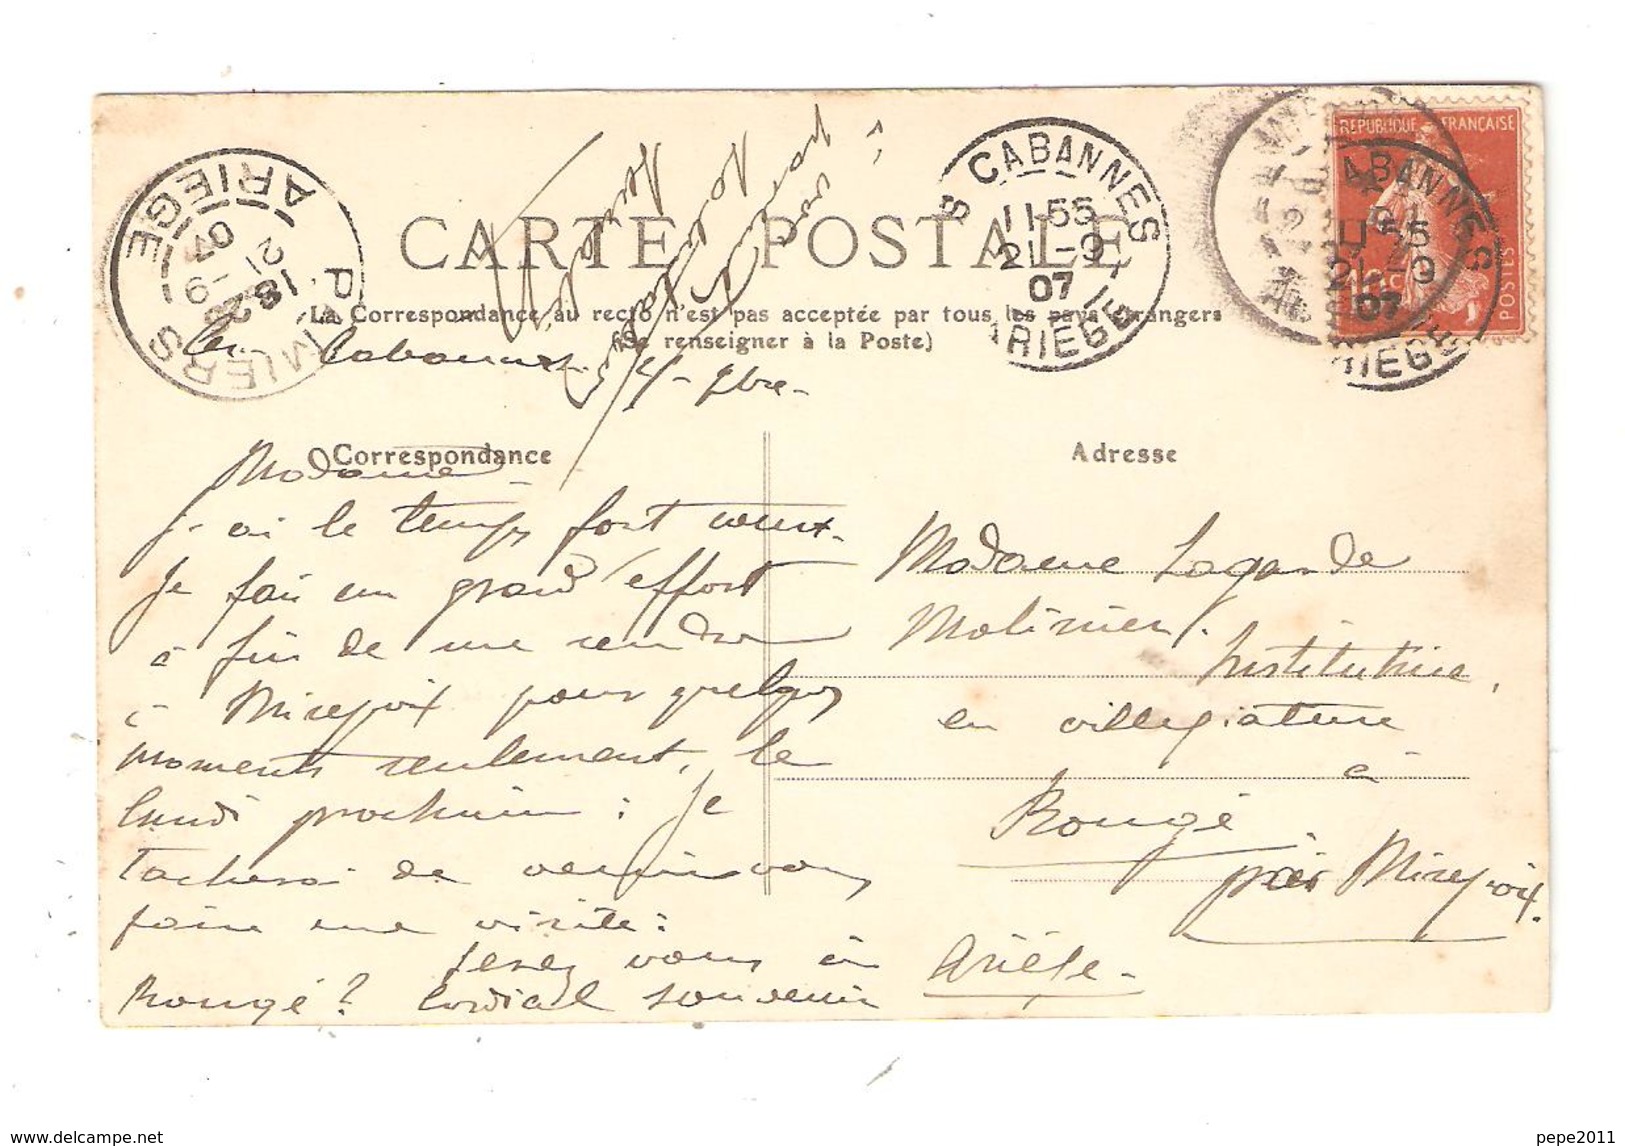 CARTE POSTALE
La Correspondance au recto n'est pas acceptée par tous les pays étrangers
(Se renseigner à la Poste)
PAMIERS
ARIEGE
18
21-9
07
S CABANNES
11 55
21-9
07
ARIEGE
REPUBLIQUE FRANÇAISE
POSTES
CABANNES
11 55
21-9
07
ARIEGE
Cabannes 7bre
Correspondance
Madame
j'ai le temps fort
Je fais un grand effort
à fin de me rendre
à Mirepoix pour quelques
moments seulement, le
lundi prochain : Je
tacherai de venir vous
faire une visite :
serez vous à
Rougé ? Cordial souvenir
Adresse
Madame Lagarde
Molinier. Institutrice,
en villégiature
à
Rougé
près Mirepoix.
Ariège
pepe2011
www.delcampe.net